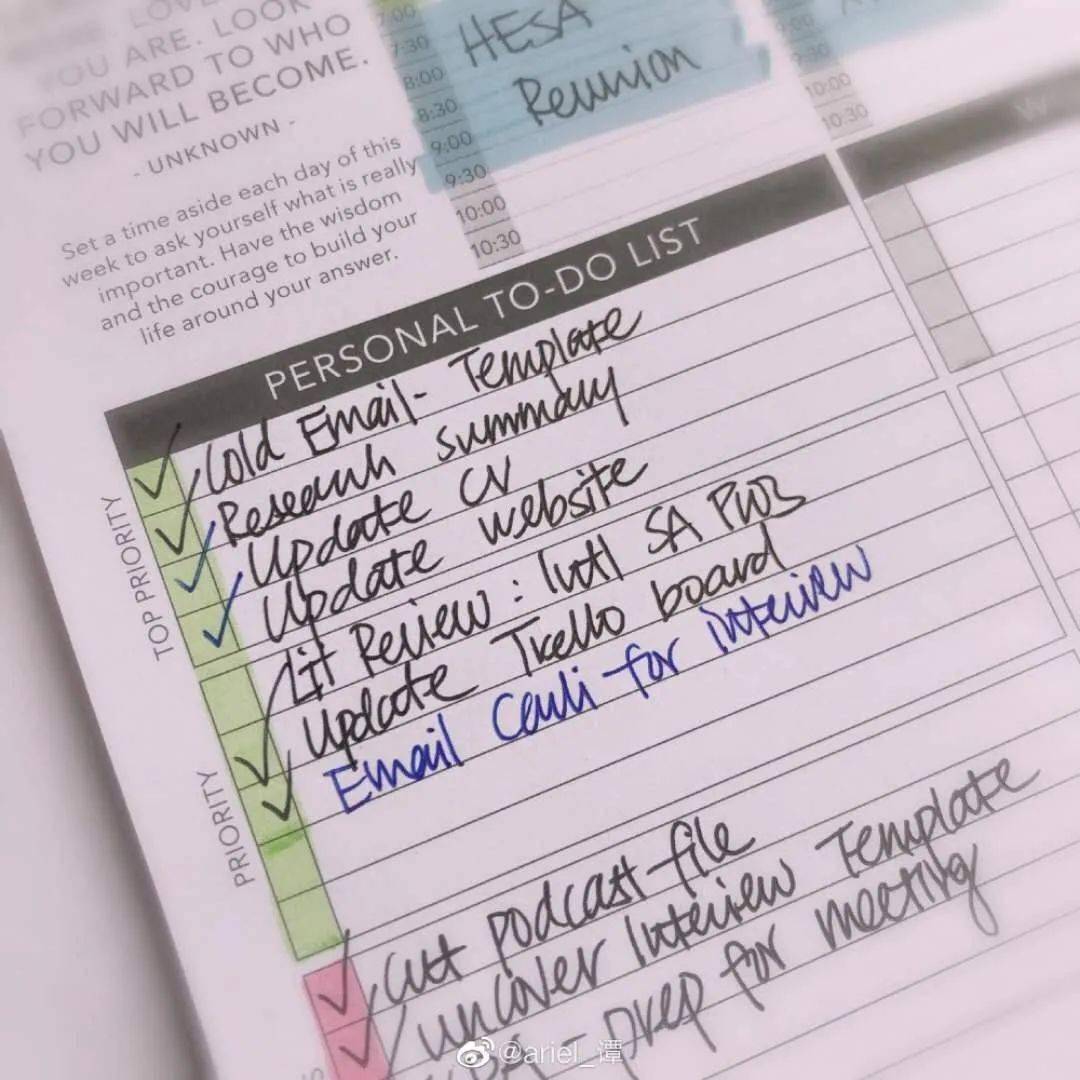 LOVE
YOU ARE. LOOK
FORWARD TO WHO
YOU WILL BECOME.
- UNKNOWN -
Set a time aside each day of this
week to ask yourself what is really
important. Have the wisdom
and the courage to build your
life around your answer.
7:00
7:30
8:00
8:30
9:00
9:30
10:00
10:30
HESA
Reunion
9:00
9:30
10:00
10:30
PERSONAL TO-DO LIST
TOP PRIORITY
✓ Cold Email - Template
✓ Research summary
✓ Update CV
✓ Update website
PRIORITY
✓ Lit Review: Intl SA PWB
✓ Update Trello board
Email for interview
✓ cut podcast file
✓ uncover Interview Template
prep for meeting
@ariel_谭